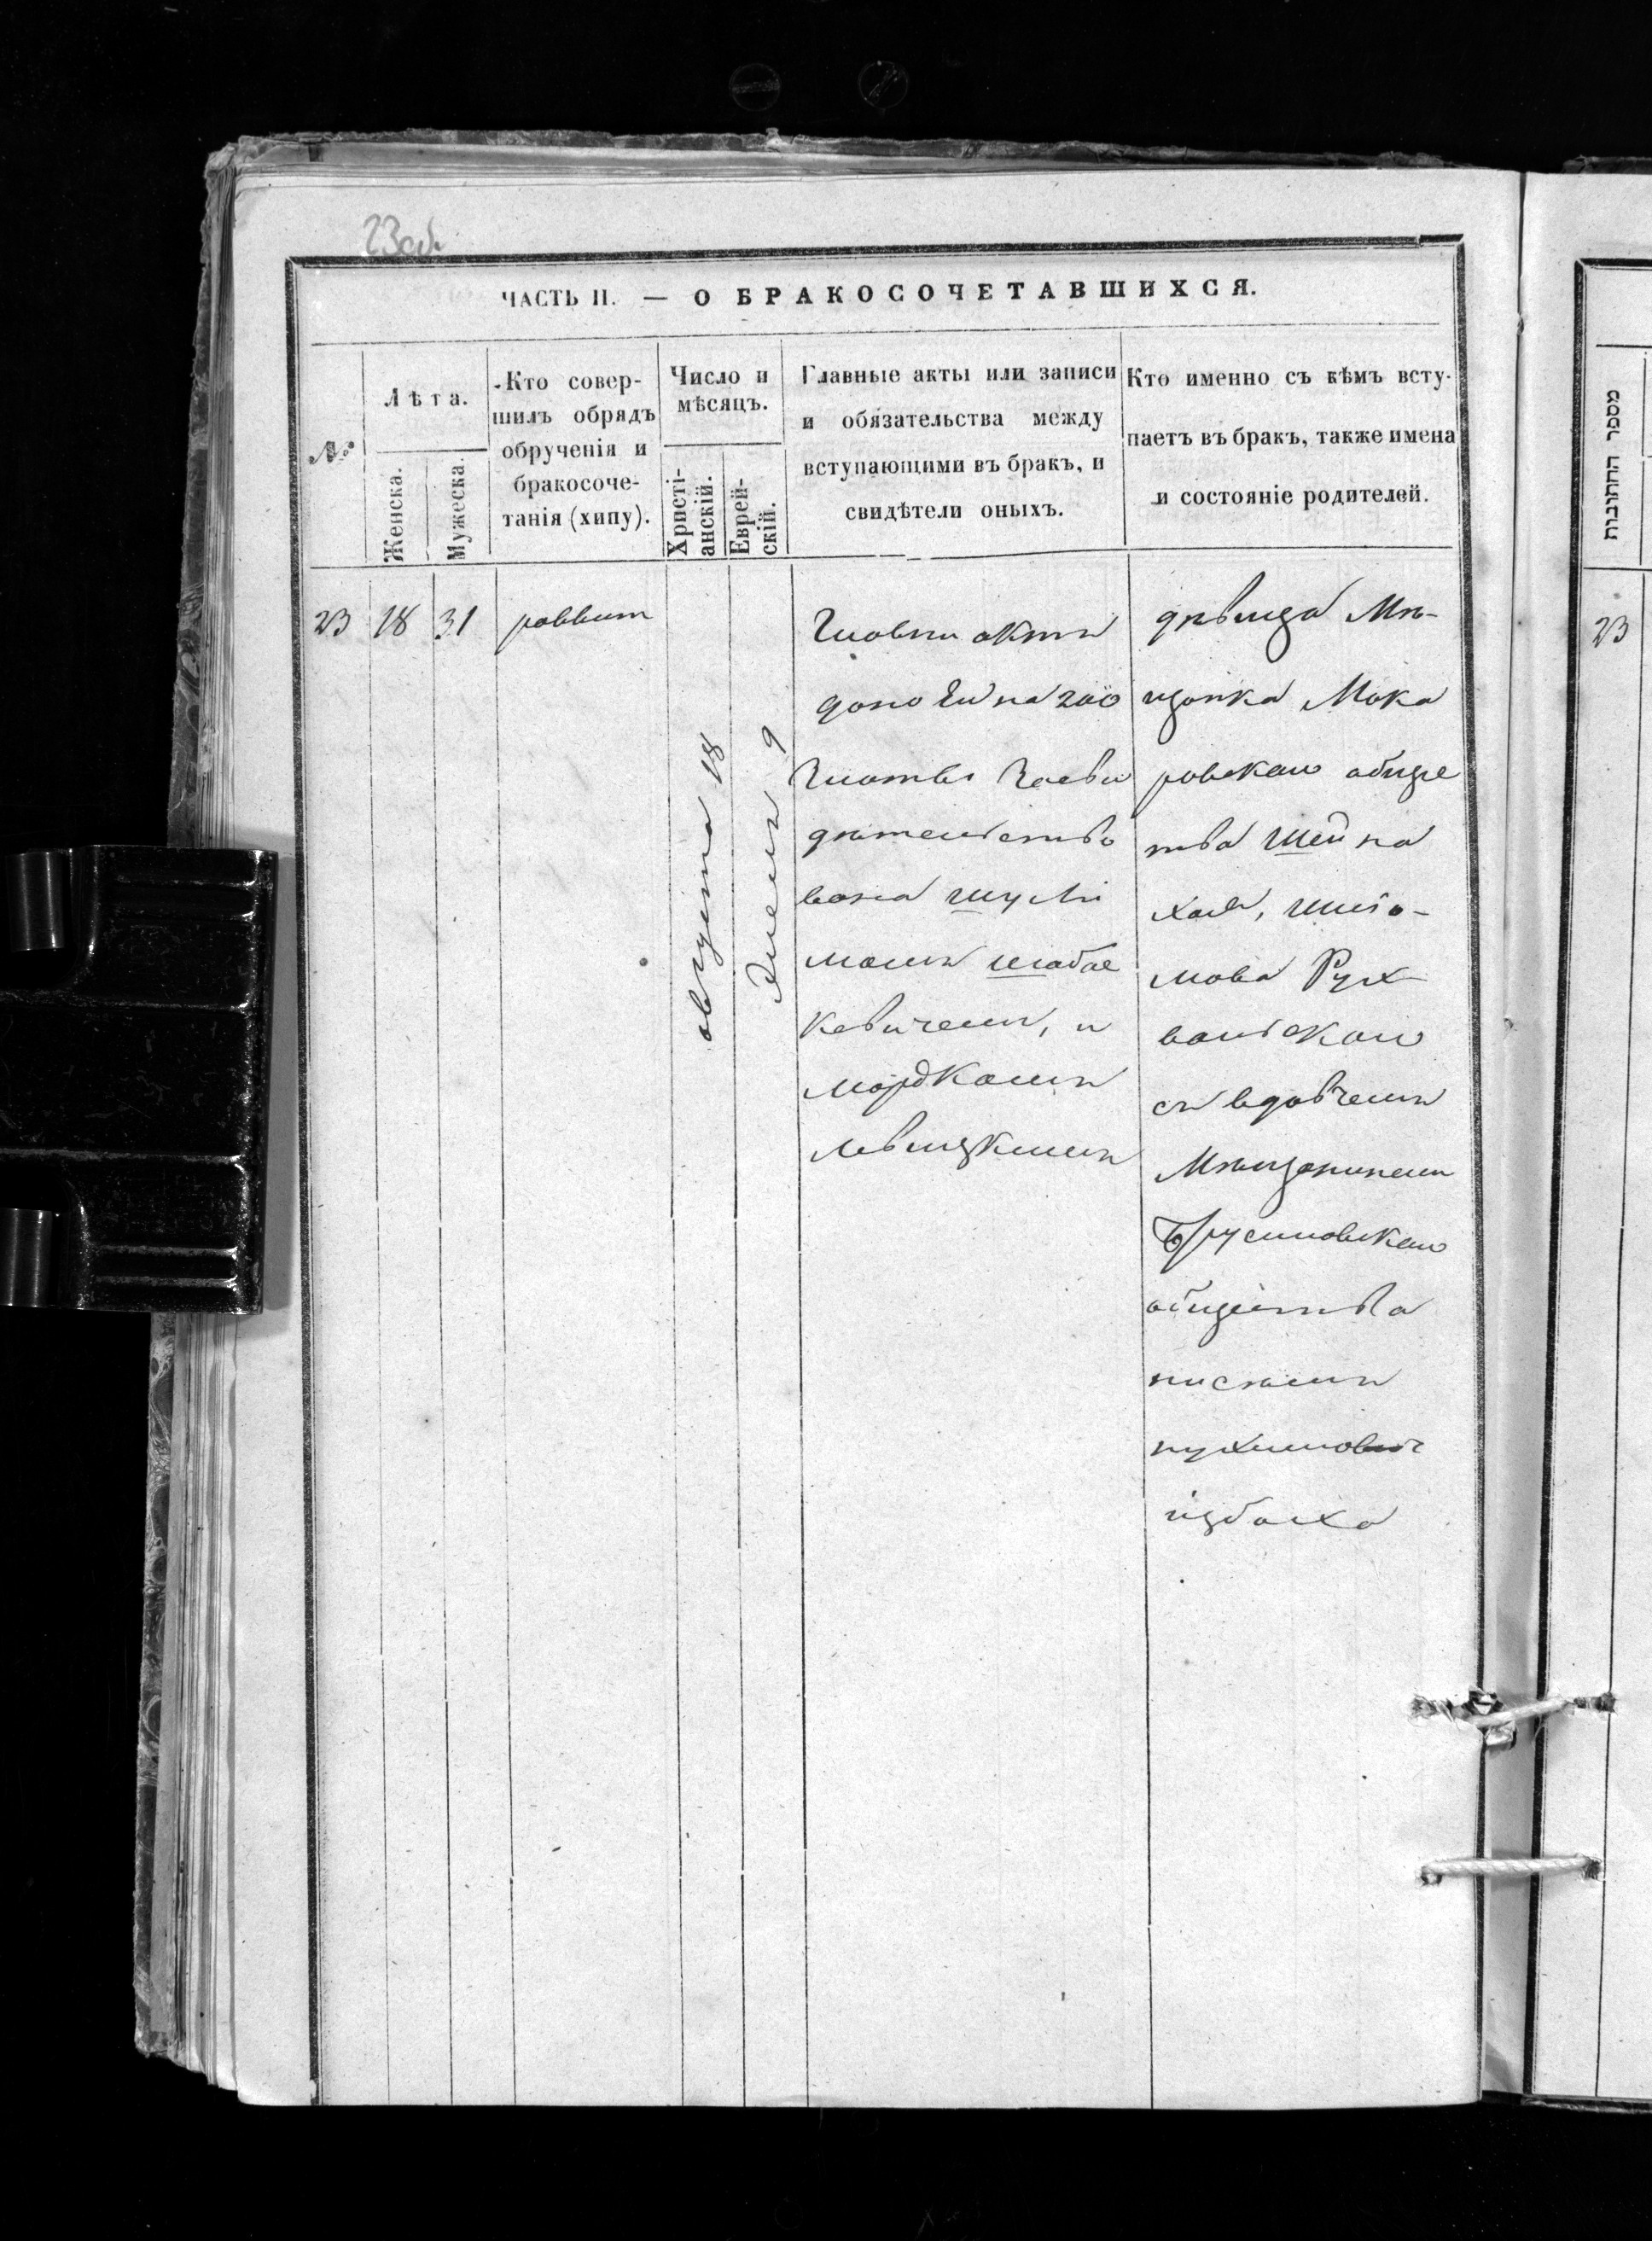 23об.
ЧАСТЬ II. — О БРАКОСОЧЕТАВШИХСЯ.
№
Лѣта.
Женска.
Мужеска.
Кто совер-
шилъ обрядъ
обрученія и
бракосоче-
танія (хипу).
Число и
мѣсяцъ.
Христі-
анскій.
Еврей-
скій.
Главные акты или записи
и обязательства между
вступающими въ бракъ, и
свидѣтели оныхъ.
Кто именно съ кѣмъ всту-
паетъ въ бракъ, также имена
и состояніе родителей.
23
18
31
раввин
августа 18
9
акть
дано ей на 200
дѣтельство
вана шулі
момъ
кевичемъ, и
мордкомъ
левицкимъ
дѣвица Мѣ-
щанка Мака
ровскаго обще
тва Шейна
хая, шлio-
мова Рух
вольскаго
съ вдовчемъ
Мѣщаниномъ
Брусиловскаго
общества
нисѣмъ
нухимович
מספר החתונות
23